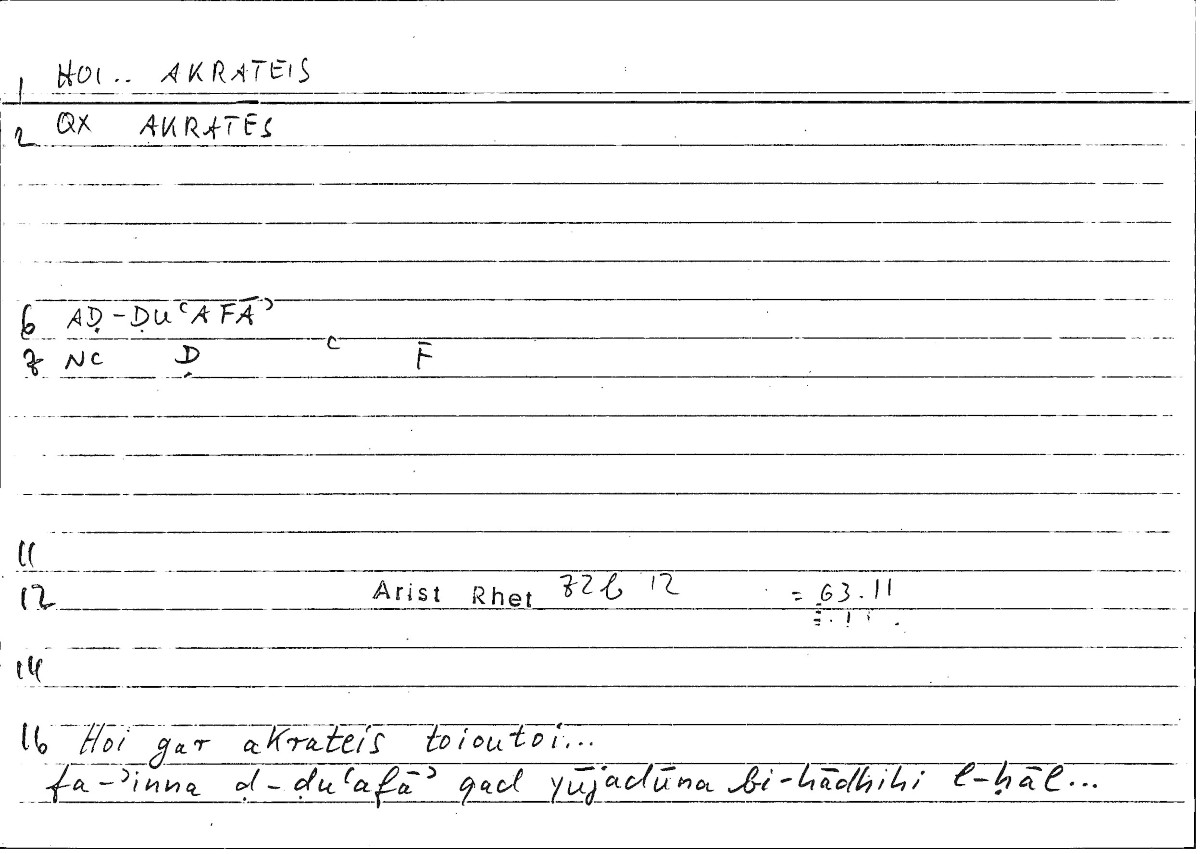 1 HOI.. AKRATEIS
2 QX AKRATES
6 AḌ-ḌUʿAFĀʾ
7 NC Ḍ ʿ F
11
12 Arist Rhet 72b 12 = 63.11
14
16 Hoi gar akrateis toioutoi...
fa-ʾinna ḍ-ḍuʿafāʾ qad yūjadūna bi-hādhihi l-ḥāl...